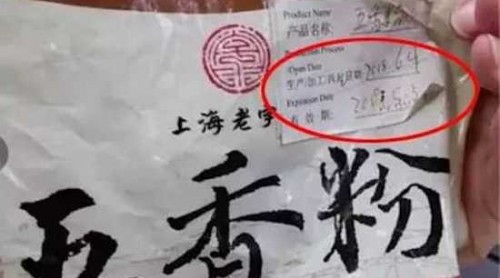 Product Name
产品名称: 五香粉
Production Process
Open Date
生产/加工/开封日期 2018.6.4
Expiration Date
有效期:
上海老字
五香粉